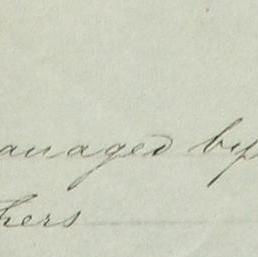 anaged by
hers